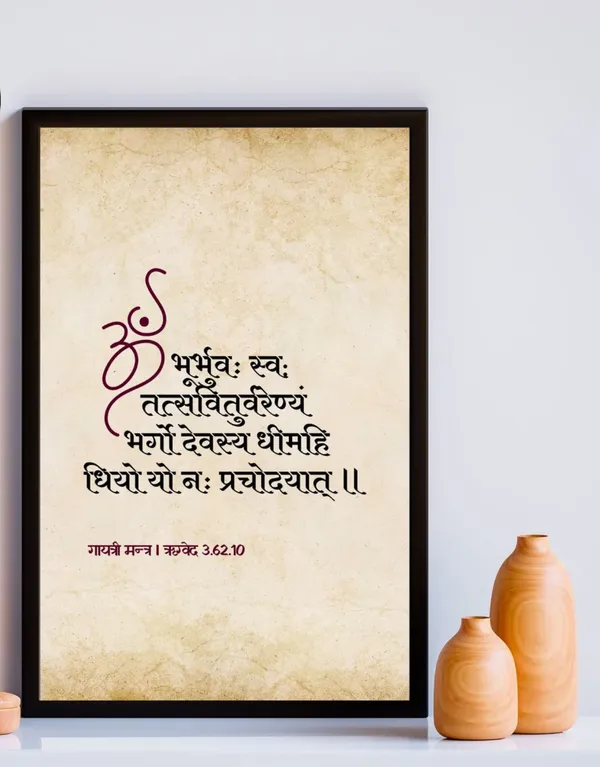 ॐ भूर्भुवः स्वः
तत्सवितुर्वरेण्यं
भर्गो देवस्य धीमहि
धियो यो नः प्रचोदयात् ॥
गायत्री मन्त्र । ऋग्वेद 3.62.10